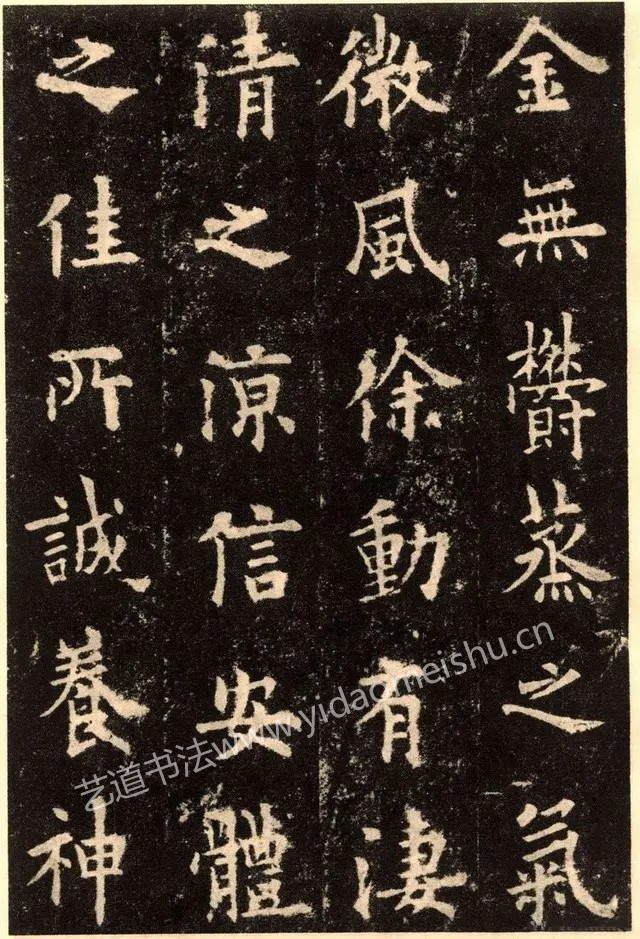 金無欝蒸之氣
微風徐動有淒
清之凉信安體
之佳所誠養神
艺道书法www.yidaomeishu.cn